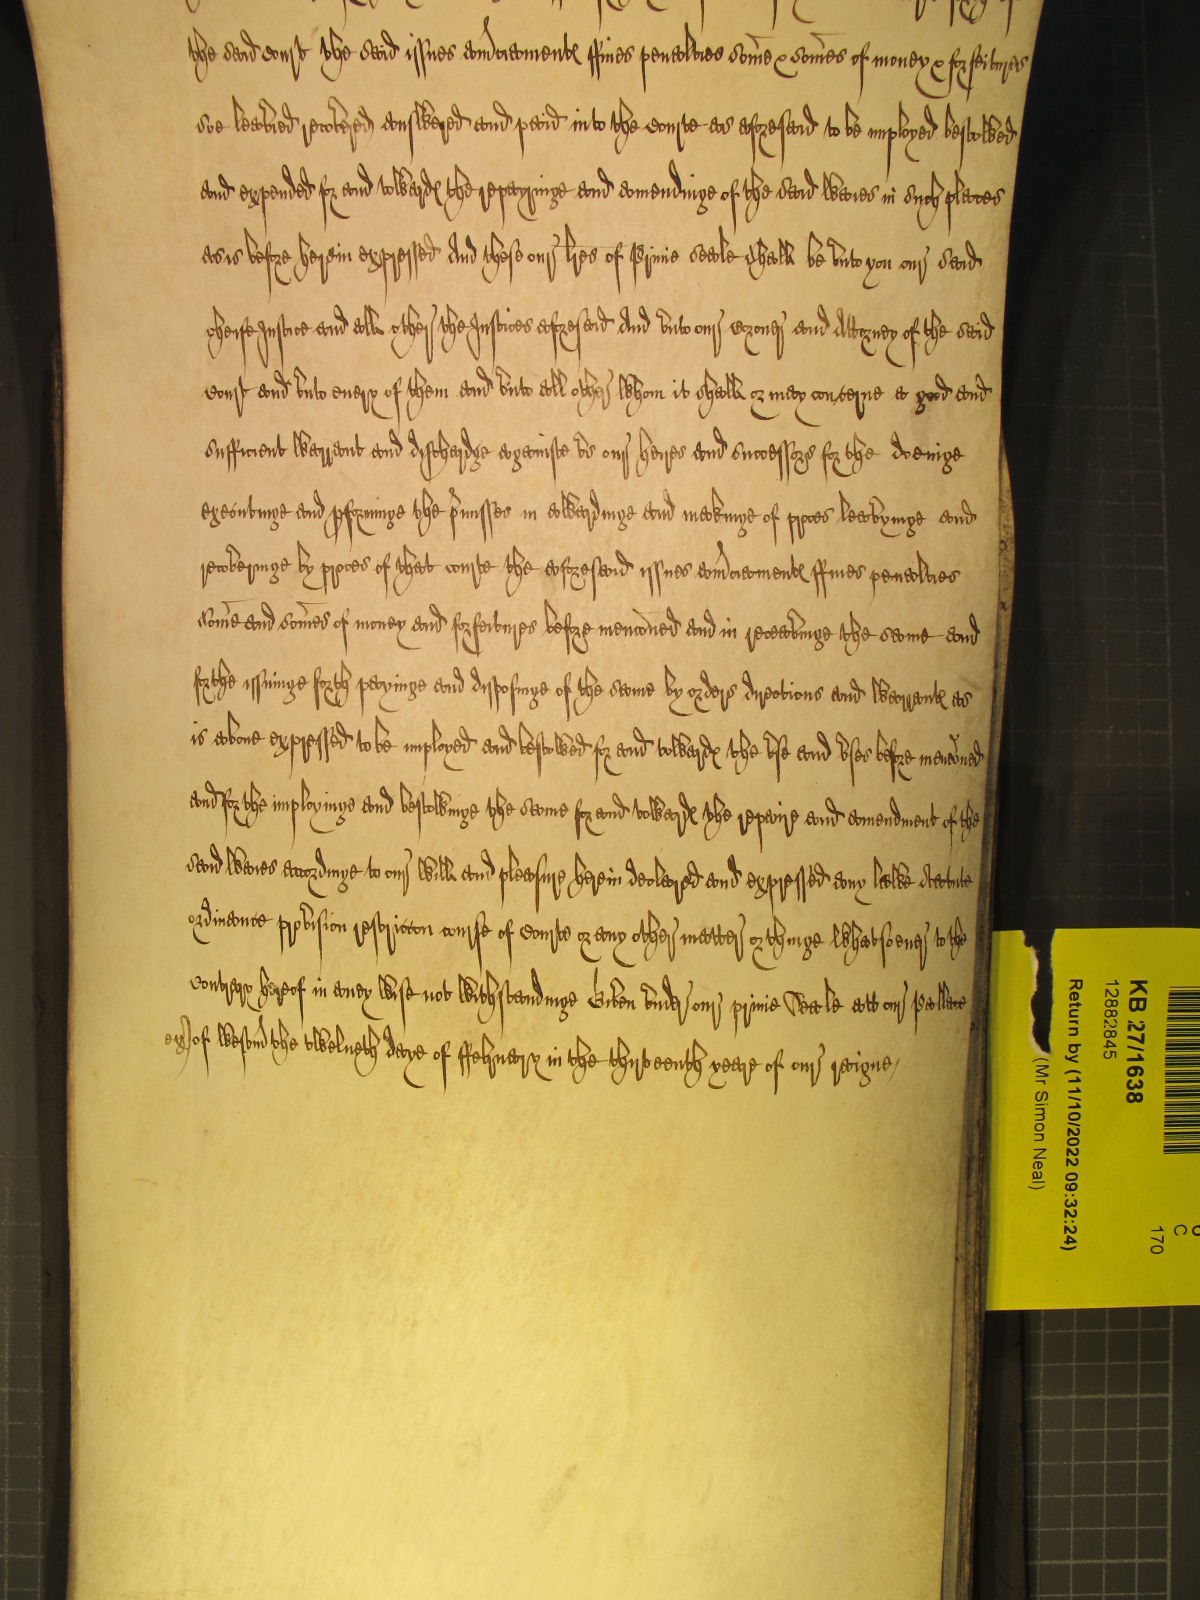 the said Court the said issues am̃ciamentℓ ffines penalties som̃e & som̃es of money & forfeitures
soe leavied recovered answered and paid into the Courte as aforesaid to be imployed bestowed
and expended for and towardℓ the repayringe and amendinge of the said waies in such places
as is before herein expressed And these our l̃res of Privie Seale shall be vnto you our said
Cheife Justice and all other the Justices aforesaid And vnto our Coroner and Attorney of the said
Court and vnto every of them and vnto all other whom it shall or may concerne a good and
sufficient warrant and dischardge againste vs our heires and successors for the doeinge
executinge and pforminge the p̃misses in awardinge and makinge of proces leavyinge and
recoveringe by proces of that Courte the aforesaid issues am̃ciamentℓ ffines penalties
som̃e and som̃es of money and forfeitures before menc̃oned and in receavinge the same and
for the issuinge forth payinge and disposinge of the same by orders directions and warrantℓ as
is above expressed to be imployed and bestowed for and towardℓ the vse and vses before menc̃oned
and for the imployinge and bestowinge the same for and towardℓ the repaire and amendment of the
said waies accordinge to our will and pleasure herein declared and expressed any lawe Statute
ordinance provision restriccon course of Courte or any other matter or thinge whatsoever to the
Contrary hereof in aney wise not withstandinge Given vnder our privie Seale att our Pallace
ex) of Westm̃ the twelueth daye of ffebruary in the thirteenth yeare of our raigne/
KB 27/1638
12882845
Return by (11/10/2022 09:32:24)
(Mr Simon Neal)
C
170